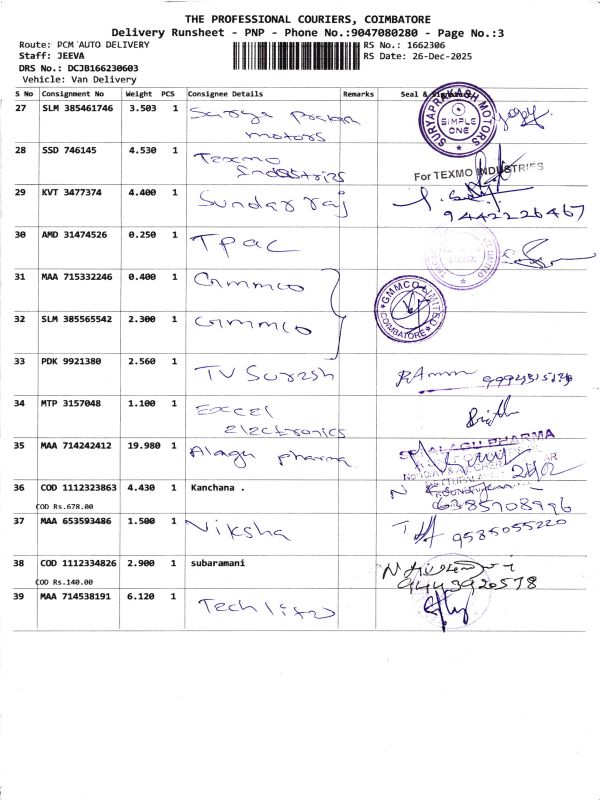 THE PROFESSIONAL COURIERS, COIMBATORE
Delivery Runsheet - PNP - Phone No.:9047080280 - Page No.:3
Route: PCM AUTO DELIVERY
RS No.: 1662306
Staff: JEEVA
RS Date: 26-Dec-2025
DRS No.: DCJB166230603
Vehicle: Van Delivery
S No Consignment No Weight PCS Consignee Details Remarks Seal &
27 SLM 385461746 3.503 1 Surya Prakash
motors
SURYAPRAKASH MOTORS
SIMPLE
ONE
28 SSD 746145 4.530 1 Texmo
Industries
For TEXMO INDUSTRIES
29 KVT 3477374 4.400 1 Sundar raj
9442226467
30 AMD 31474526 0.250 1 Tpac
31 MAA 715332246 0.400 1 Gmmco
GMMCO LIMITED
COIMBATORE
32 SLM 385565542 2.300 1 Gmmco
33 PDK 9921380 2.560 1 TV Suresh
34 MTP 3157048 1.100 1 Excel
Electronics
35 MAA 714242412 19.980 1 Alagu pharma
ALAGU PHARMA
36 COD 1112323863 4.430 1 Kanchana .
COD Rs.678.00
6385708996
37 MAA 653593486 1.500 1 Niksha
9585055220
38 COD 1112334826 2.900 1 subaramani
COD Rs.140.00
9443920578
39 MAA 714538191 6.120 1 Tech lifts